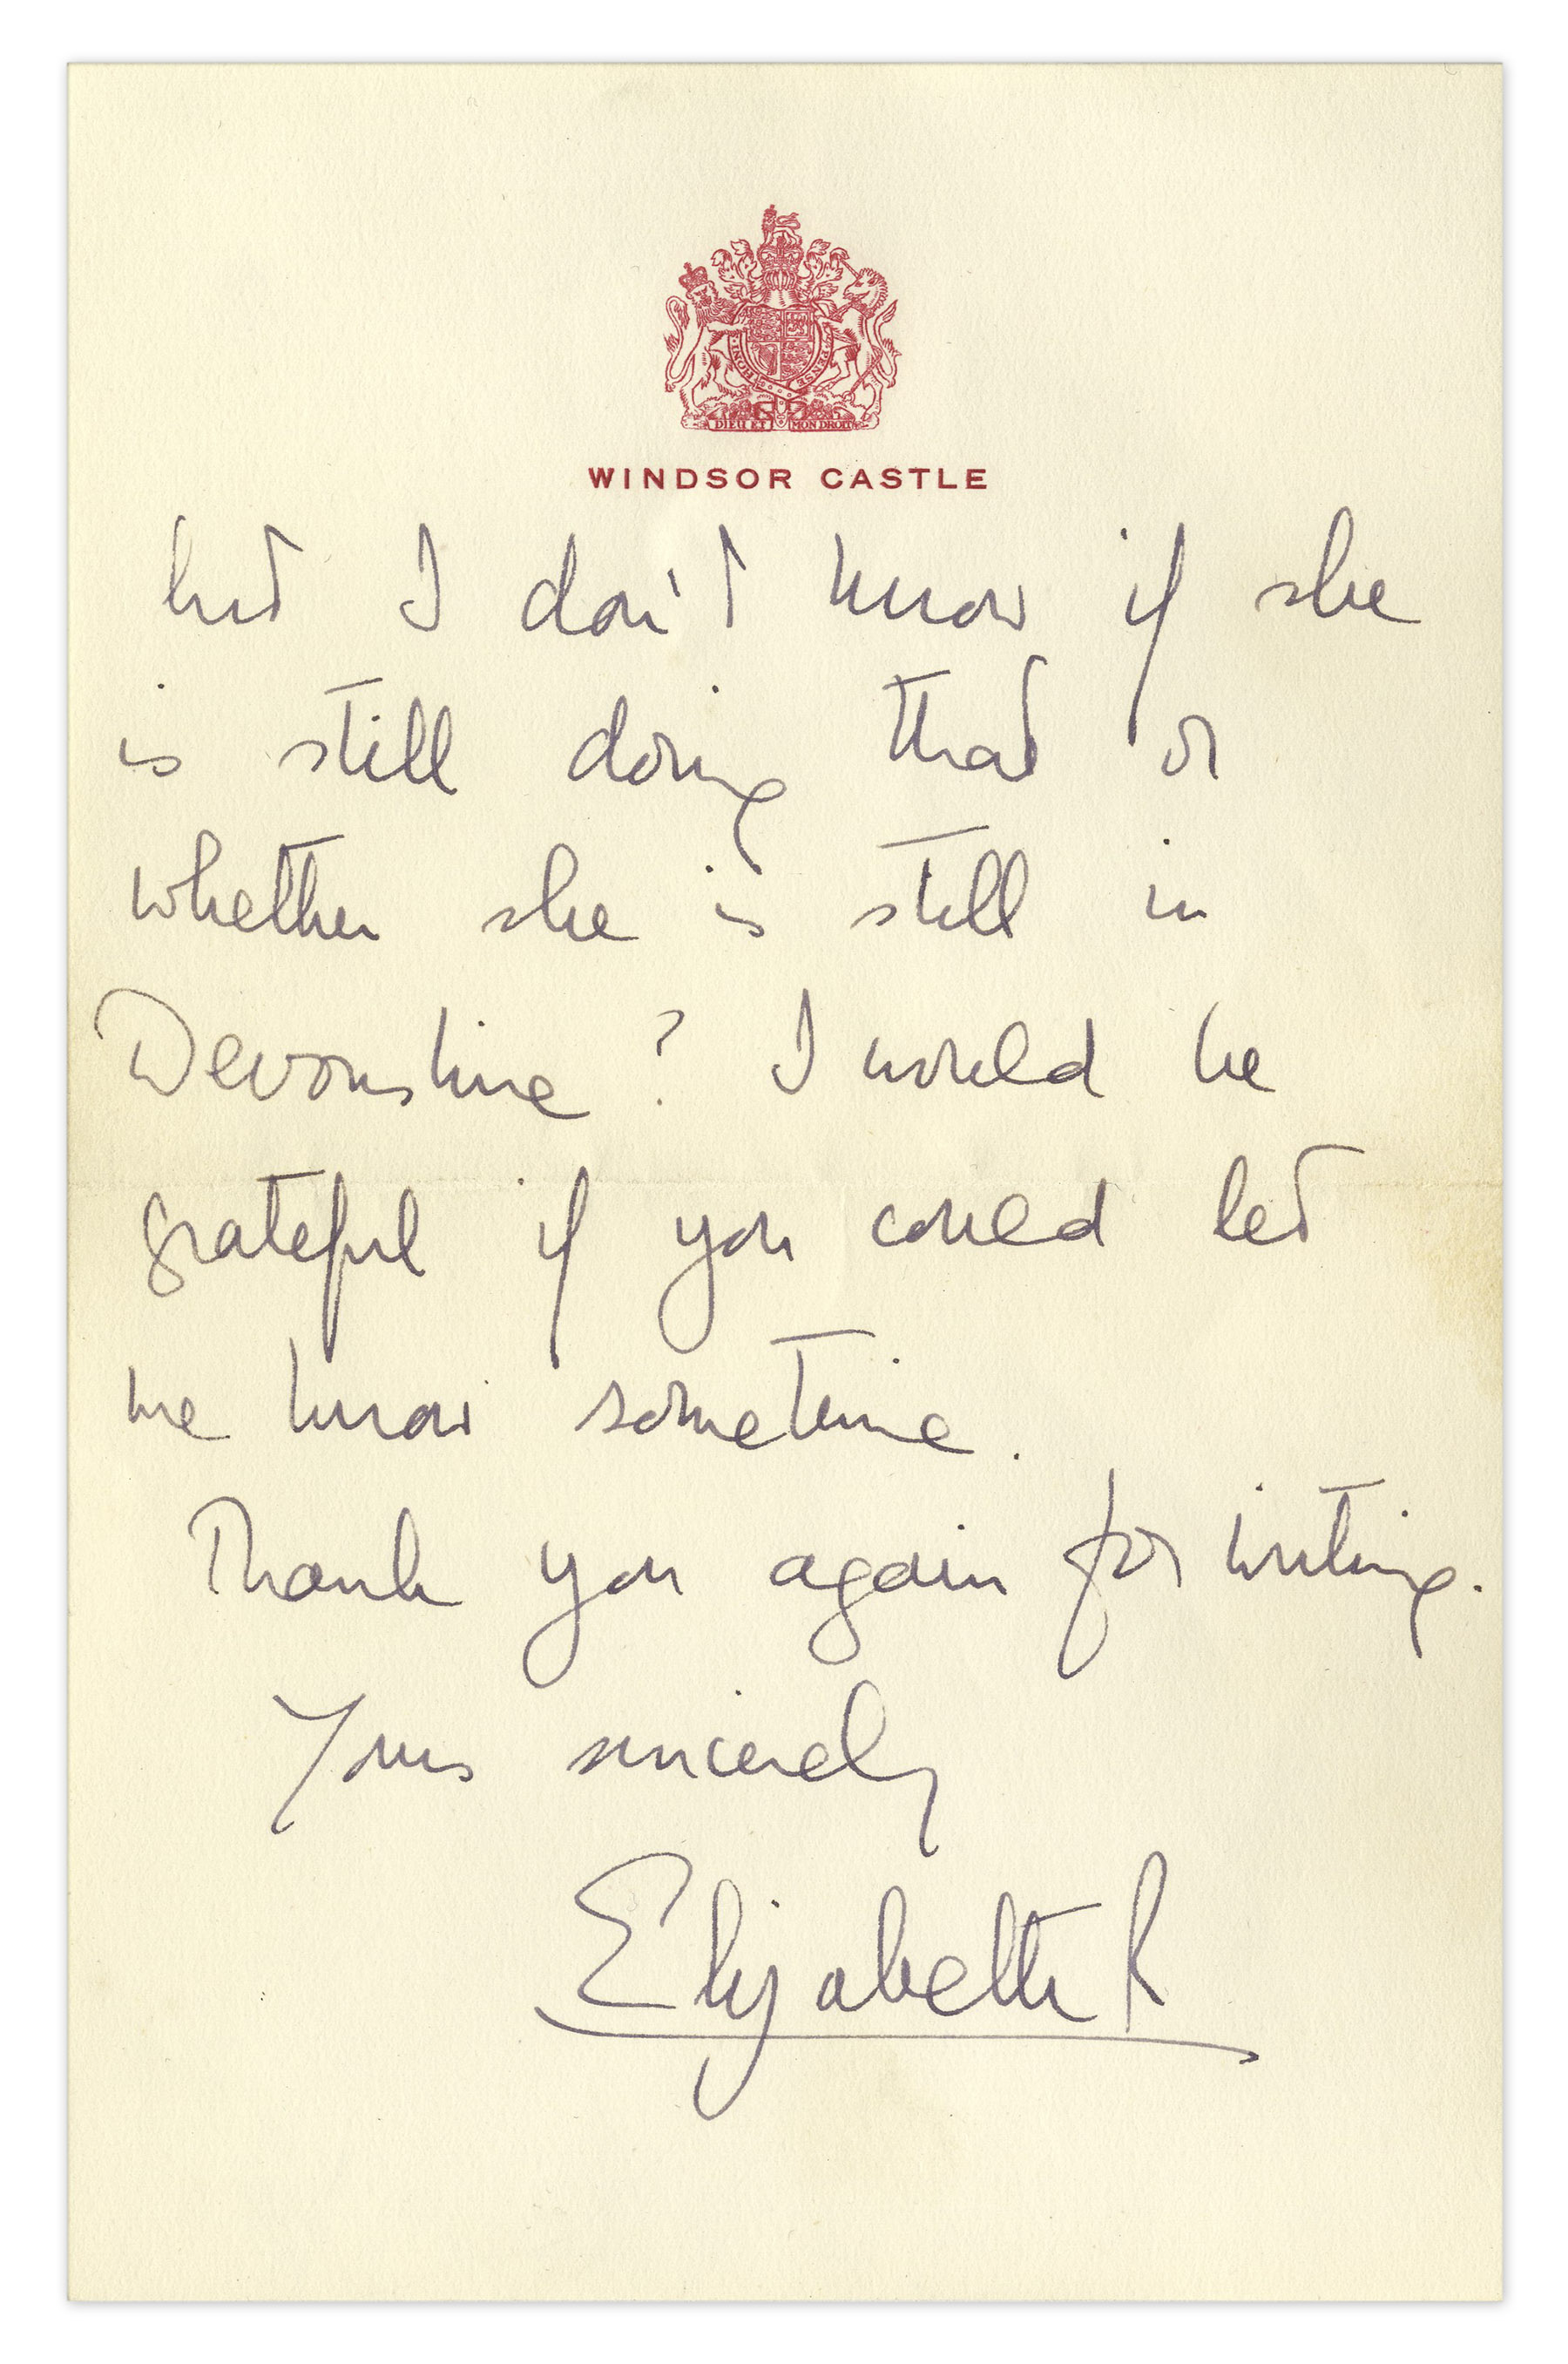 HONI
PENSE
DIEU ET MON DROIT
WINDSOR CASTLE
but I don't know if she
is still doing that or
whether she is still in
Devonshire? I would be
grateful if you could let
me know sometime.
Thank you again for writing.
Yours sincerely
Elizabeth R